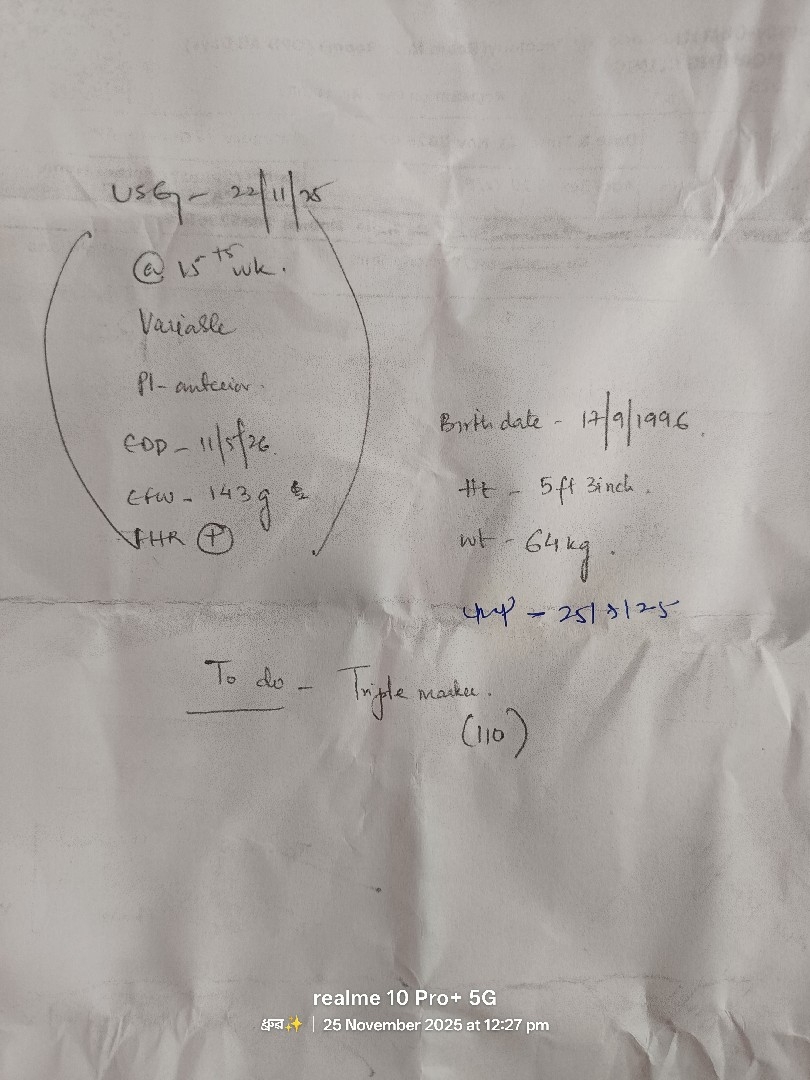 USG - 22/11/25
@ 15+5 wk.
Variable
Pl- anterior.
EDD - 11/5/26.
EFW - 143g
FHR +
Birth date - 17/9/1996.
Ht - 5ft 3inch.
wt - 64kg.
To do - Triple marker.
(110)
realme 10 Pro+ 5G
25 November 2025 at 12:27 pm